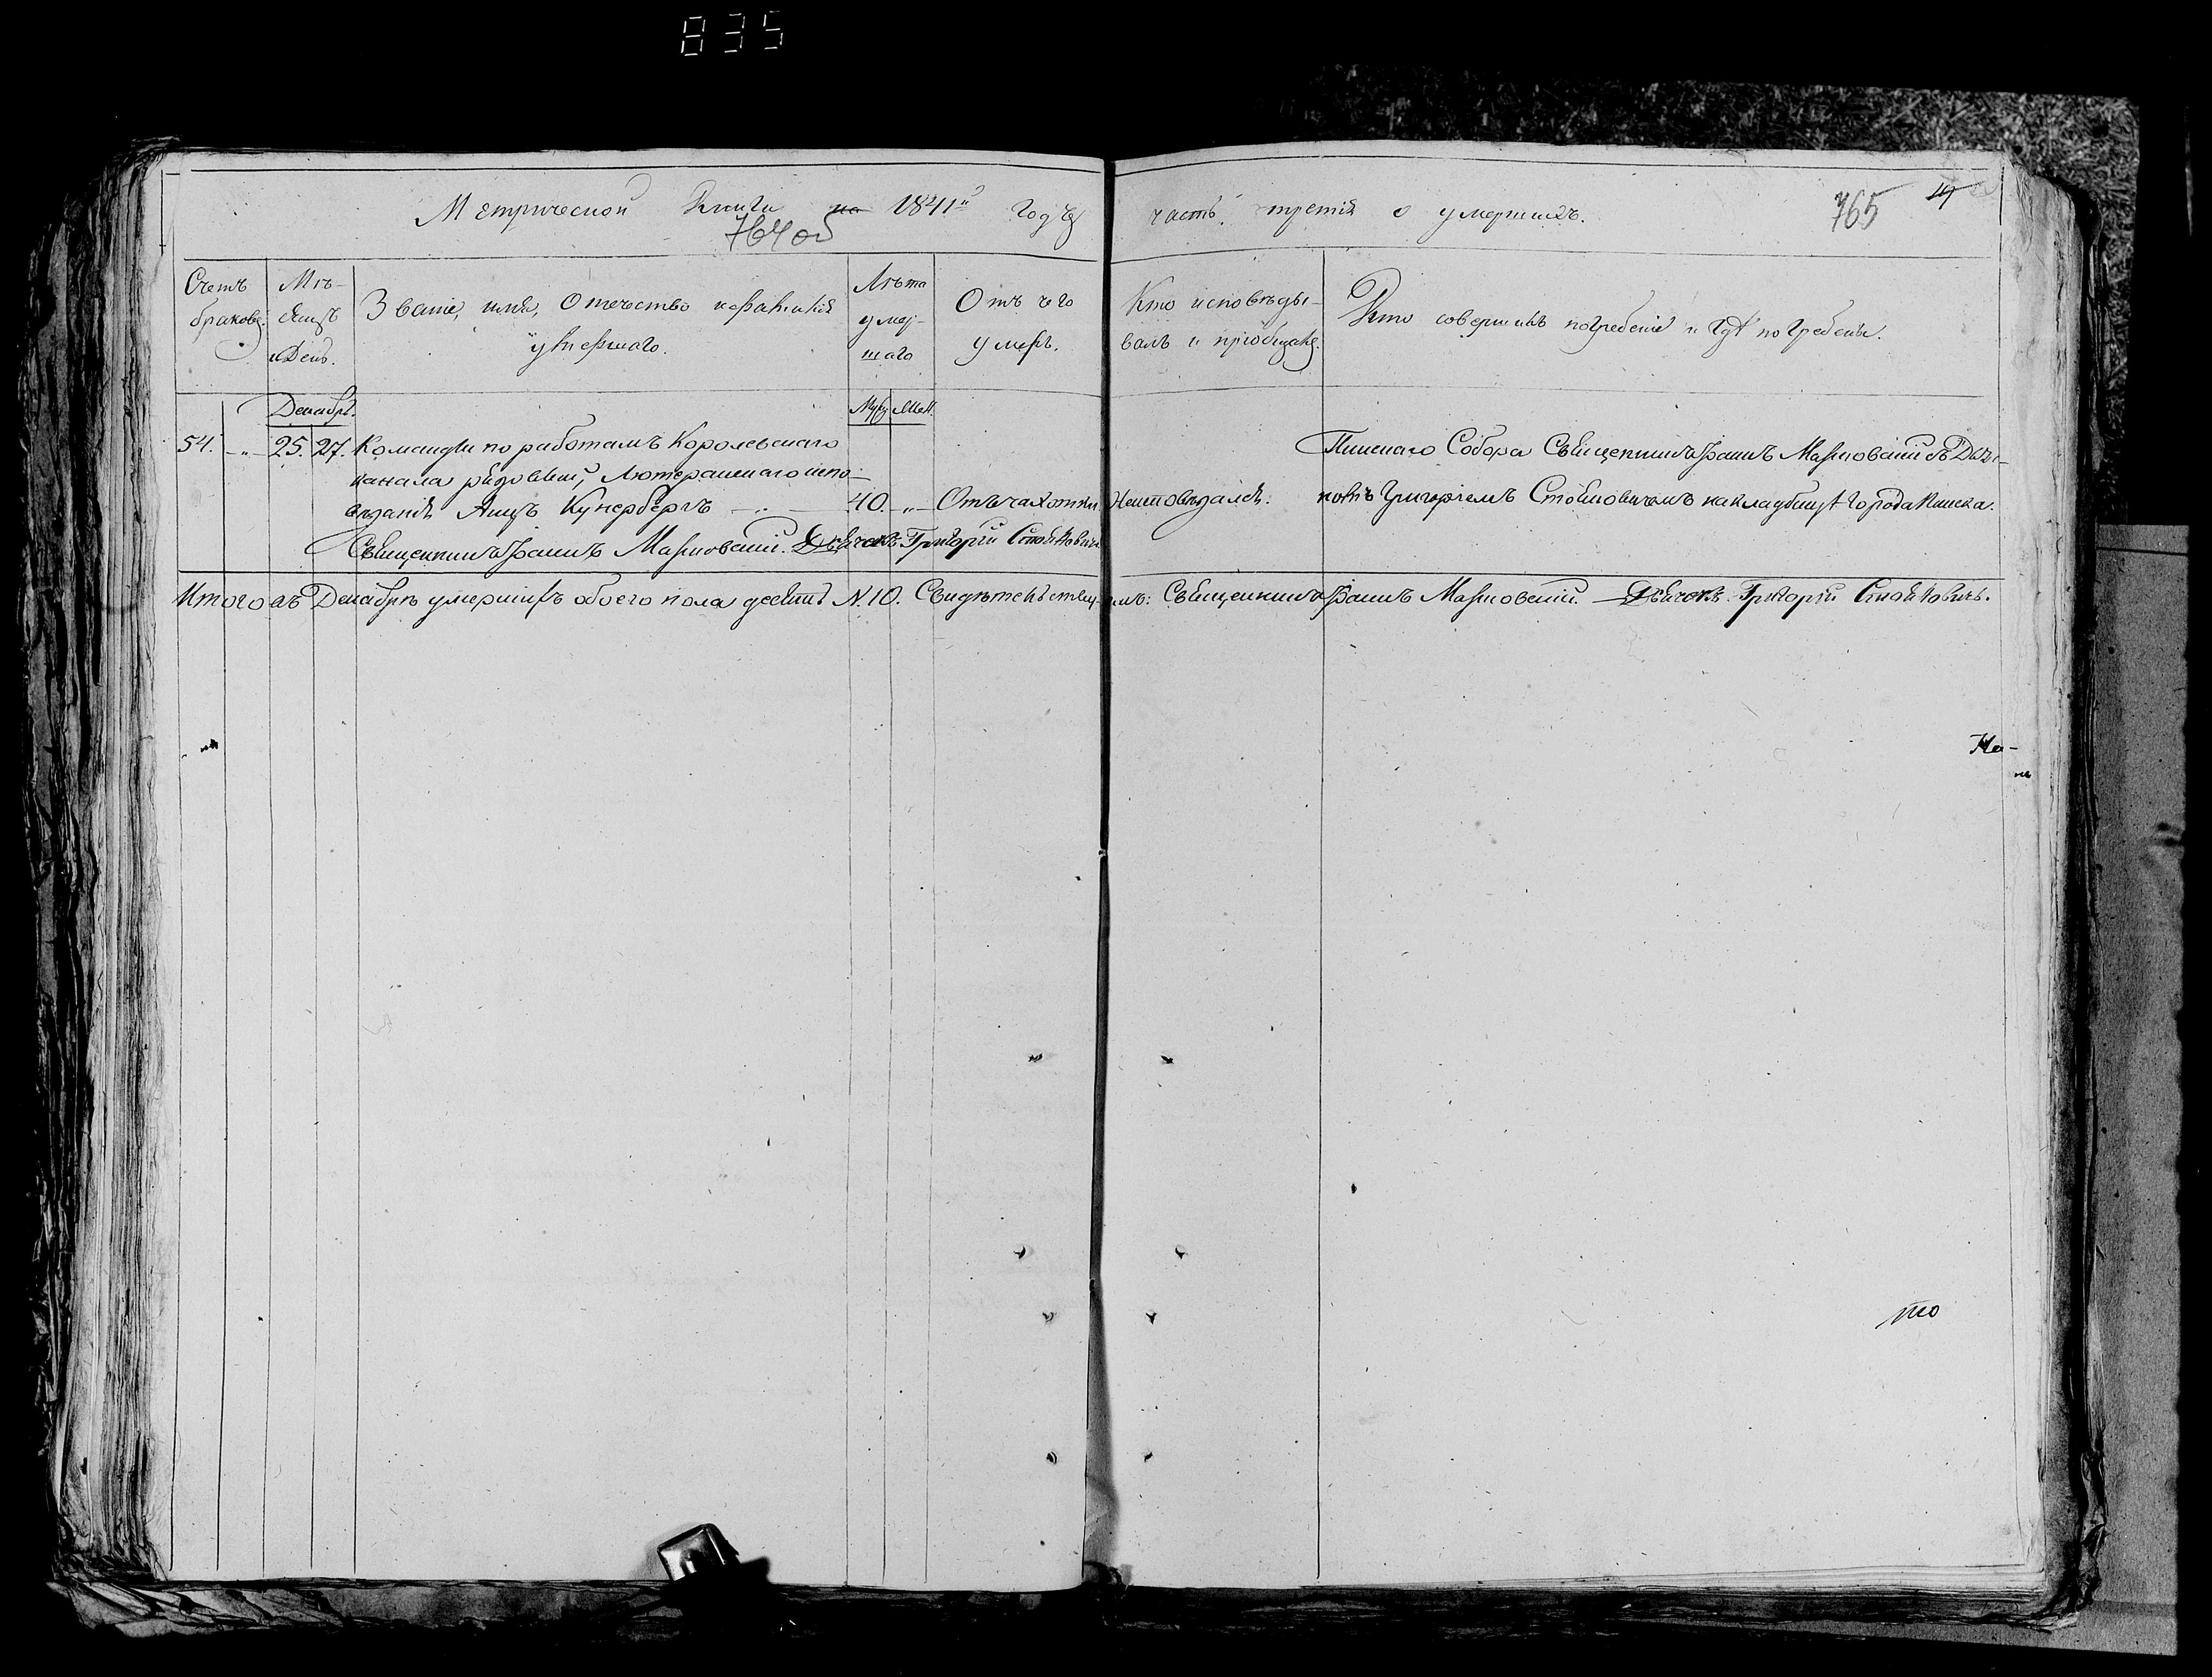 835
Метрической Книги на 1841й Годъ часть третія о умершихъ.
764об
765
Счетъ браковъ.
Мѣ-
сяцъ
и День.
Званіе, имя, Отечество и фамилія
умершаго.
Лѣта
умер-
шаго
Отъ чего
умеръ.
Кто исповѣды-
валъ и пріобщалъ.
Кто совершилъ погребеніе и гдѣ погребены.
Декабрь.
Муж. Жен.
54. -"- 25. 27. Команды по работамъ Королевскаго
канала рядовый, Лютеранскаго испо-
вѣданія Янцъ Кунербергъ -"- 40. -"- Отъ чахотки Неисповѣдался.
Пинскаго Собора Священникъ Іоаннъ Марковскій съ Дьяч-
комъ Григоріемъ Стойновичемъ на кладбищѣ города Пинска.
Священникъ Іоаннъ Марковскій. Дьячокъ Григорій Стойновичъ
Итого въ Декабрѣ умершихъ обоего пола десять N. 10. Свидѣтельствуемъ: Священникъ Іоаннъ Марковскій. Дьячокъ Григорій Стойновичъ.
На-
то